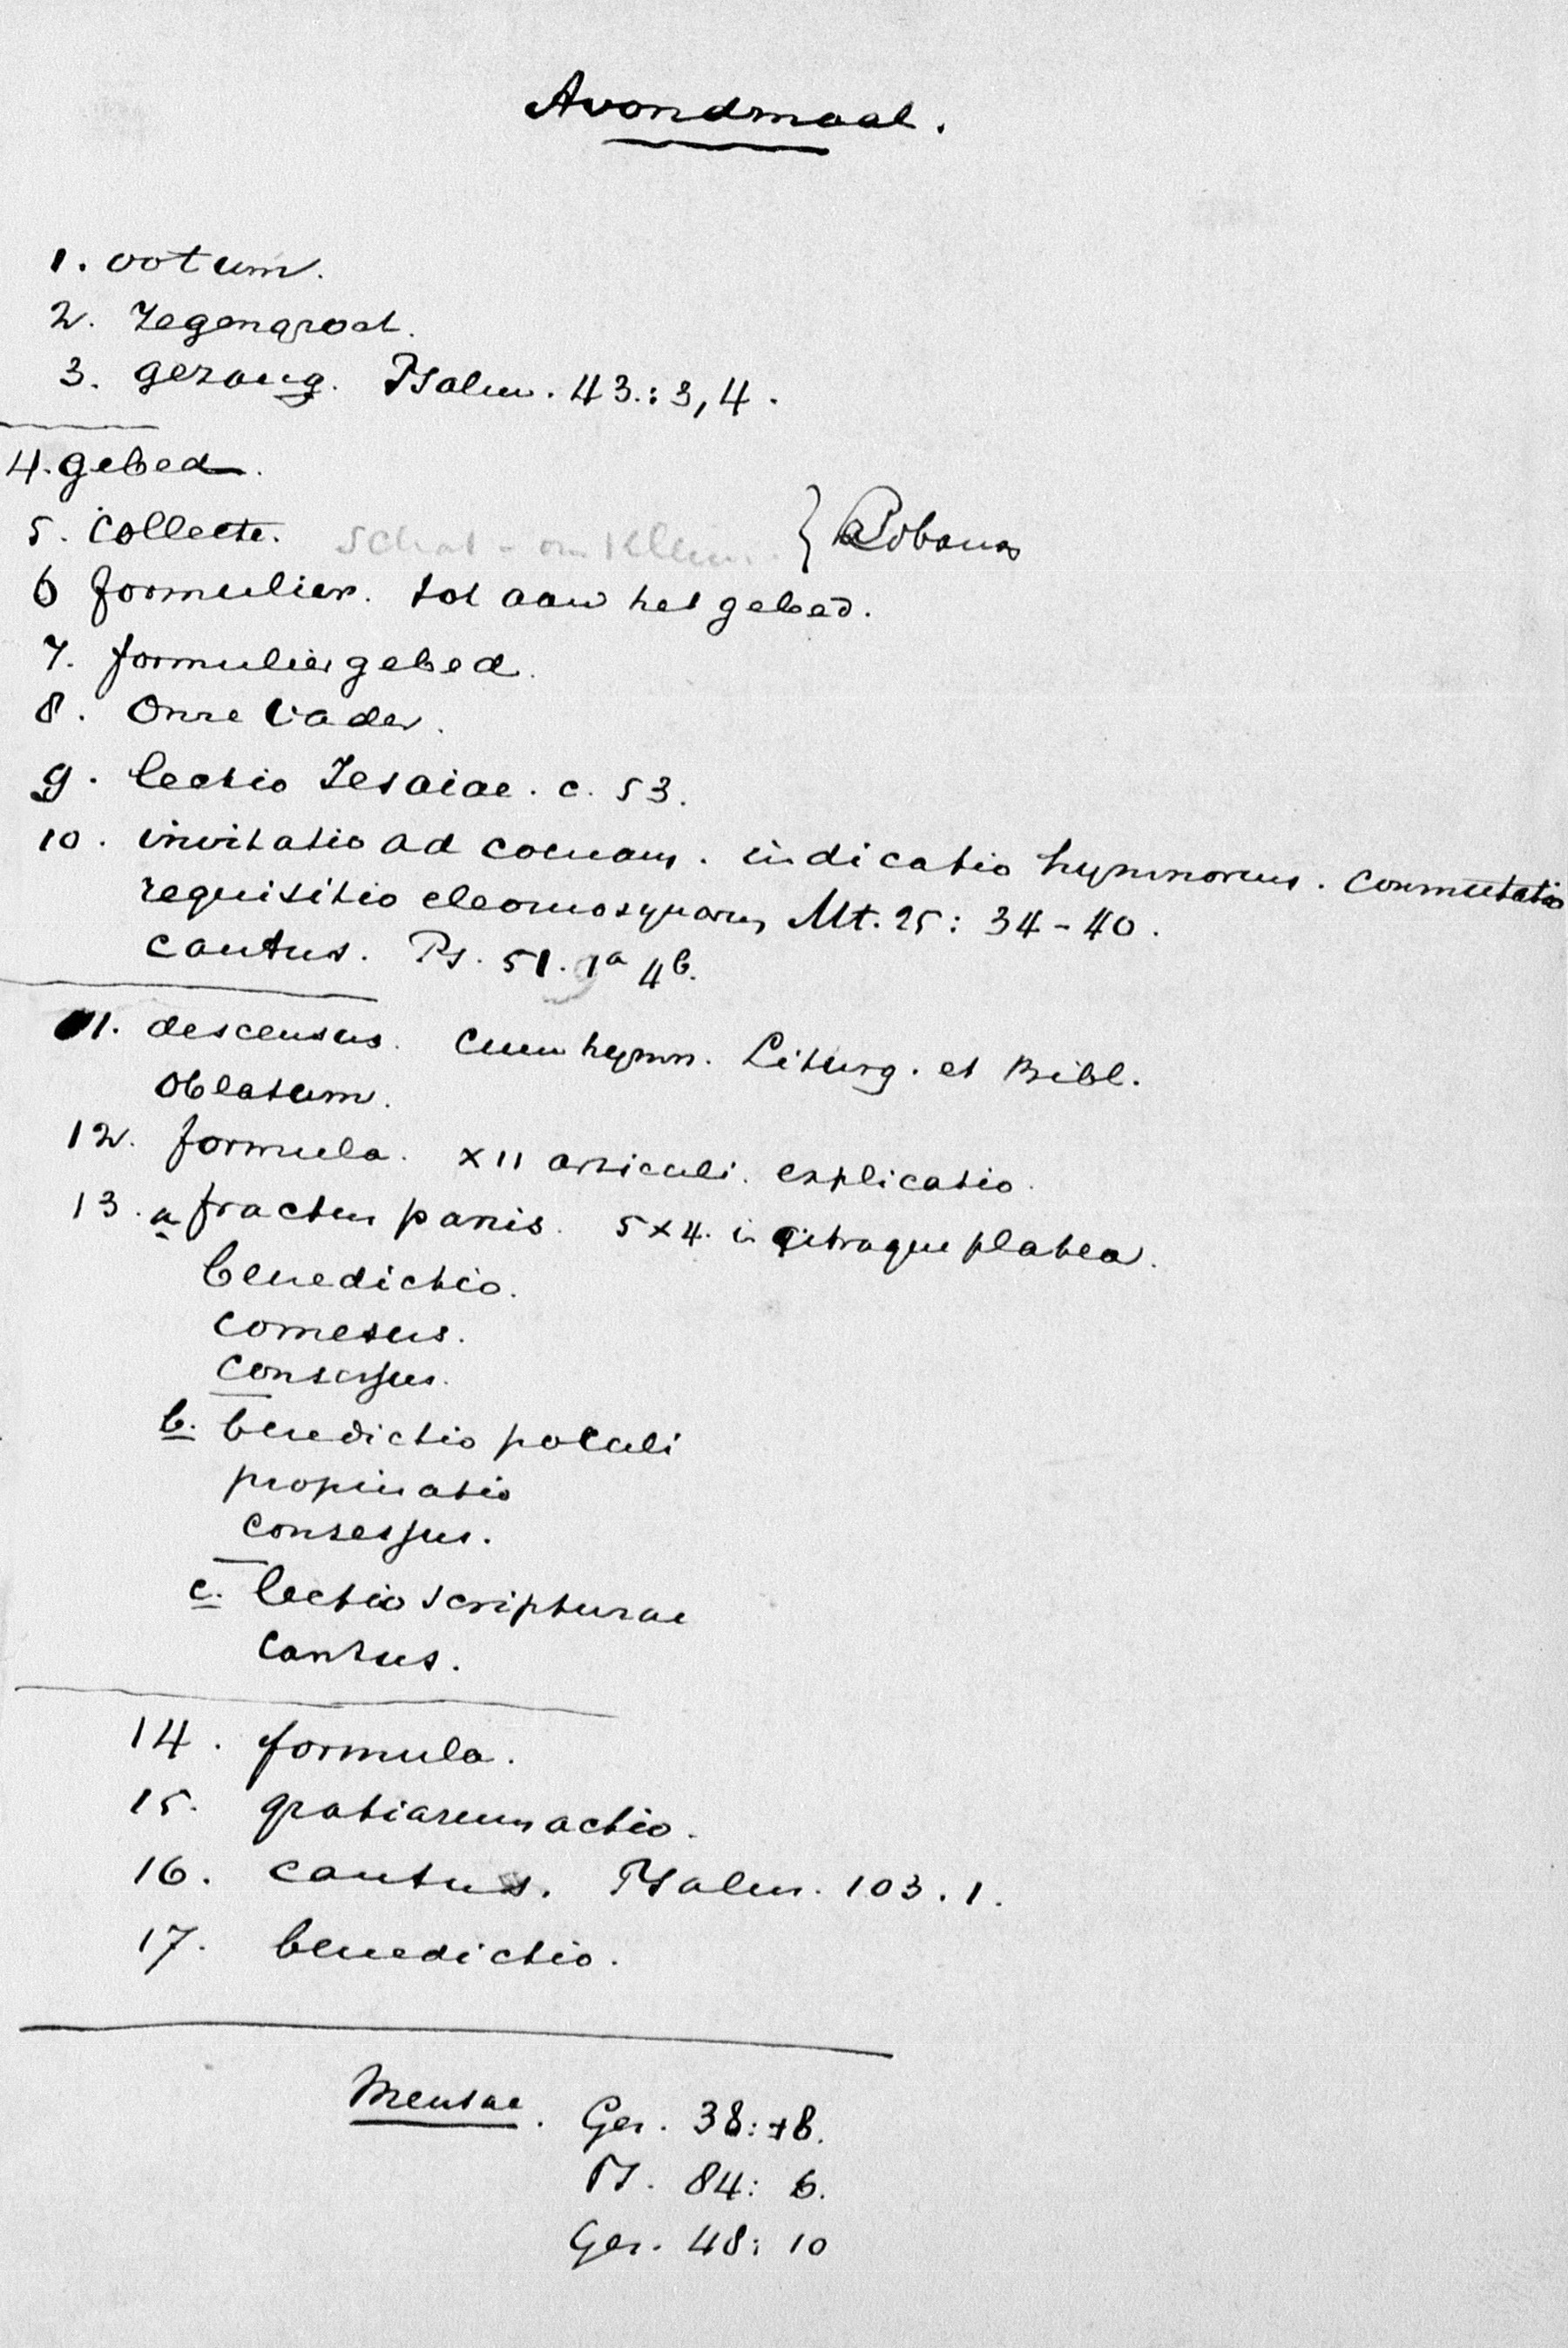 Avondmaal.
1. votum.
2. Zegengroet.
3. gezang. Psalm. 43.: 3, 4.
4. gebed.
5. Collecte.
6 formulier. tot aan het gebed.
7. formuliergebed.
8. Onze Vader.
9. lectio Jesaiae. c. 53.
10. invitatio ad coenam. indicatio hymnorum. Commutatio
requisitio eleomosynarum Mt. 25: 34-40.
cantus. Ps. 51. 1a 4b.
11. descensus. Cum hymn. Liturg. et Bibl.
oblatum.
12. formula. XII articuli. explicatio.
13. a fractus panis. 5x4. in utraque platea.
benedictio.
comesus.
consessus.
b. benedictio poculi
propinatio
consessus.
c. lectio scripturae
Cantus.
14. formula.
15. gratiarum actio.
16. cantus. Psalm. 103. 1.
17. benedictio.
Mensae. Gez. 38: 8.
Ps. 84: 6.
Gez. 48: 10